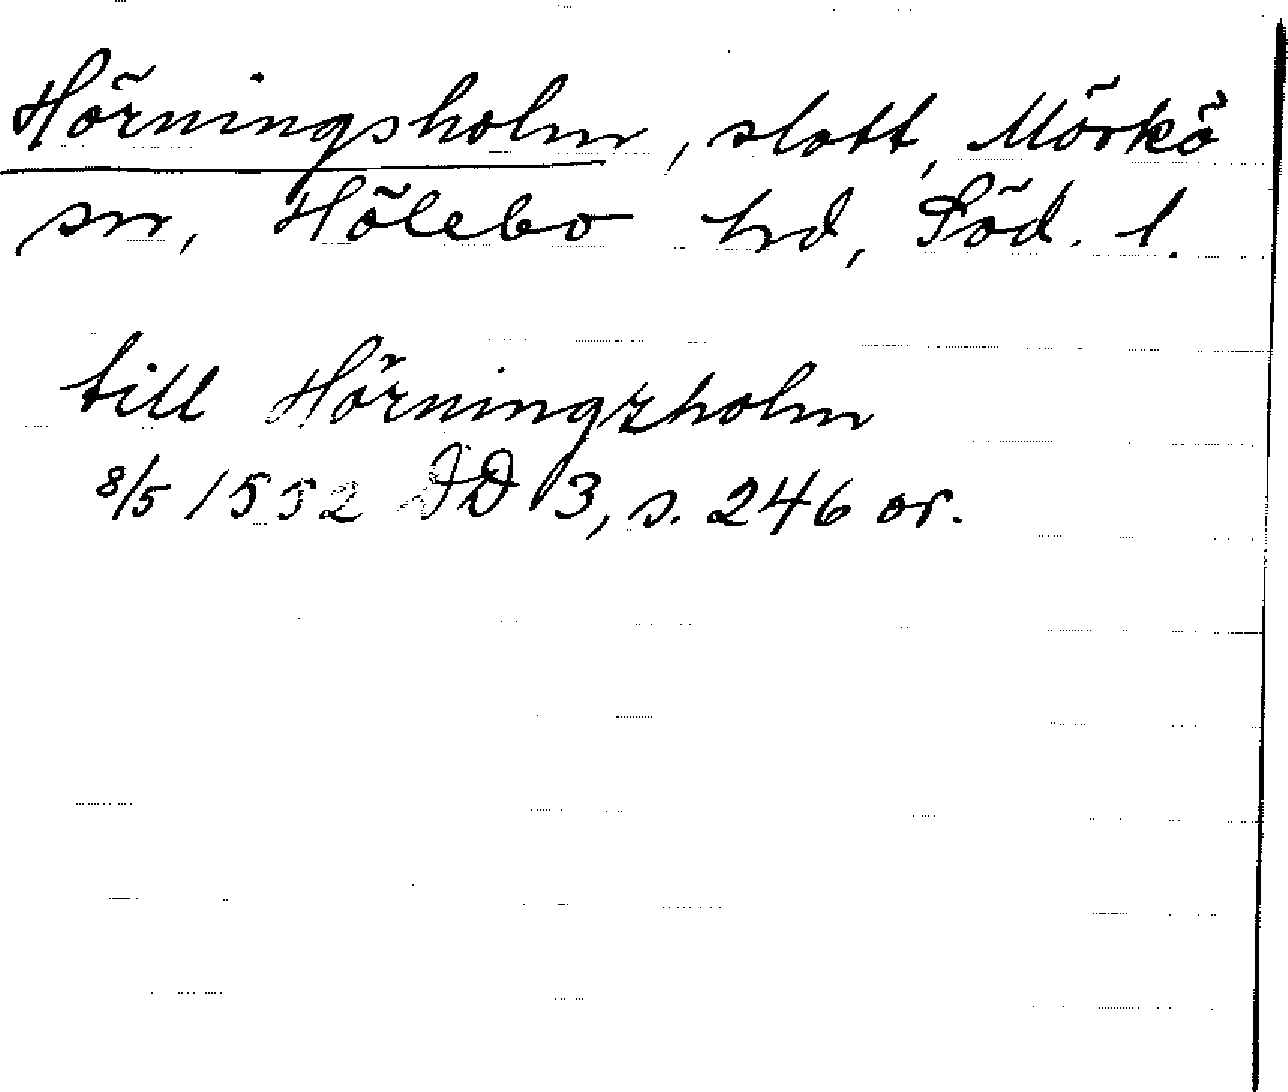 Hörningsholm, slott, Mörkö
sn, Hölebo hd, Söd. l.
till Hörningzholm
8/5 1552 DD 3, s. 246 or.